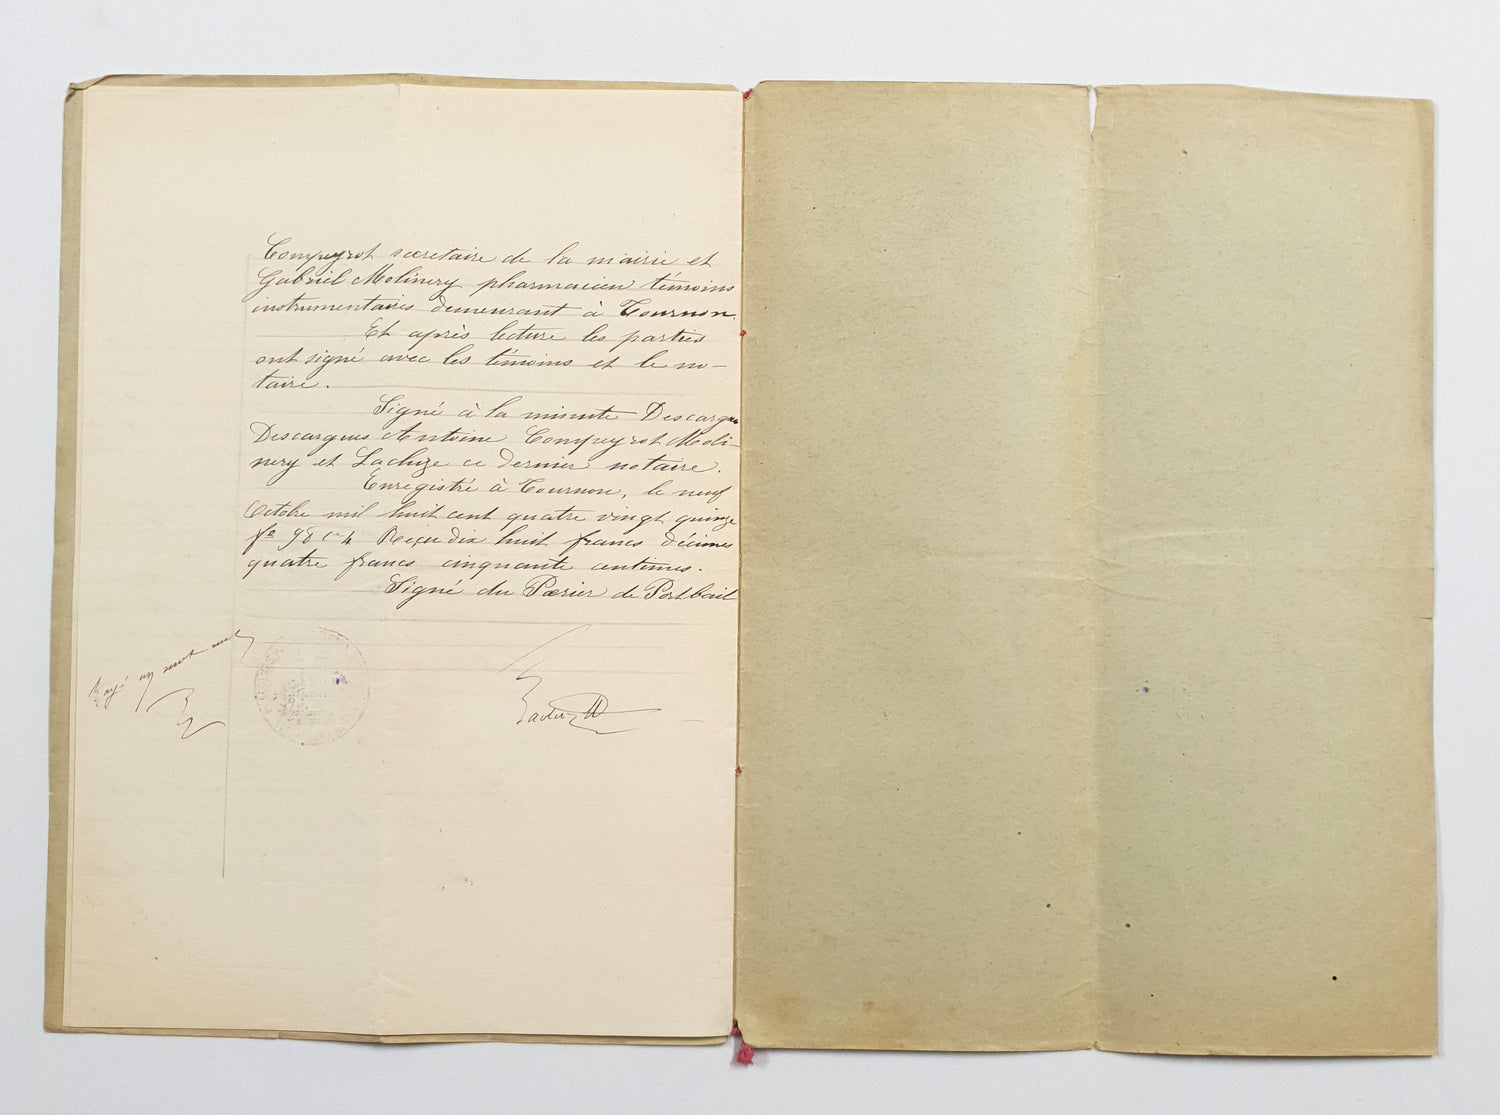 Compeyrot secretaire de la mairie et
Gabriel Molinery pharmacien témoins
instrumentaires demeurant à Tournon.
Et après lecture les parties
ont signé avec les témoins et le no-
taire.
Signé à la minute Descargues
Descargues Antoine Compeyrot Moli-
nery et Lacluze ce dernier notaire.
Enregistré à Tournon, le neuf
Octobre mil huit cent quatre vingt quinze
fo 98 Reçu dix huit francs décimes
quatre francs cinquante centimes.
Signé du Poerier de Portbail
Rayé un mot nul